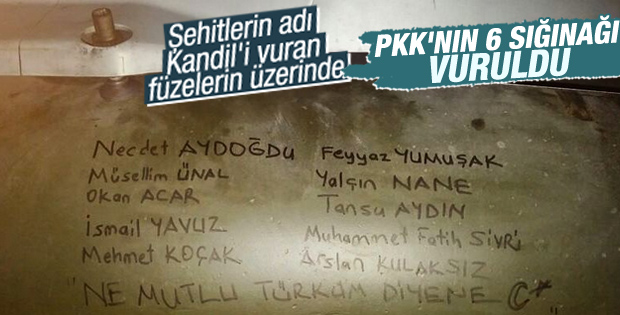 Şehitlerin adı
Kandil'i vuran
füzelerin üzerinde
PKK'NIN 6 SIĞINAĞI
VURULDU
Necdet AYDOĞDU
Müsellim ÜNAL
Okan ACAR
İsmail YAVUZ
Mehmet KOÇAK
Feyyaz YUMUŞAK
Yalçın NANE
Tansu AYDIN
Muhammet Fatih SİVRİ
Arslan KULAKSIZ
"NE MUTLU TÜRKÜM DİYENE C*